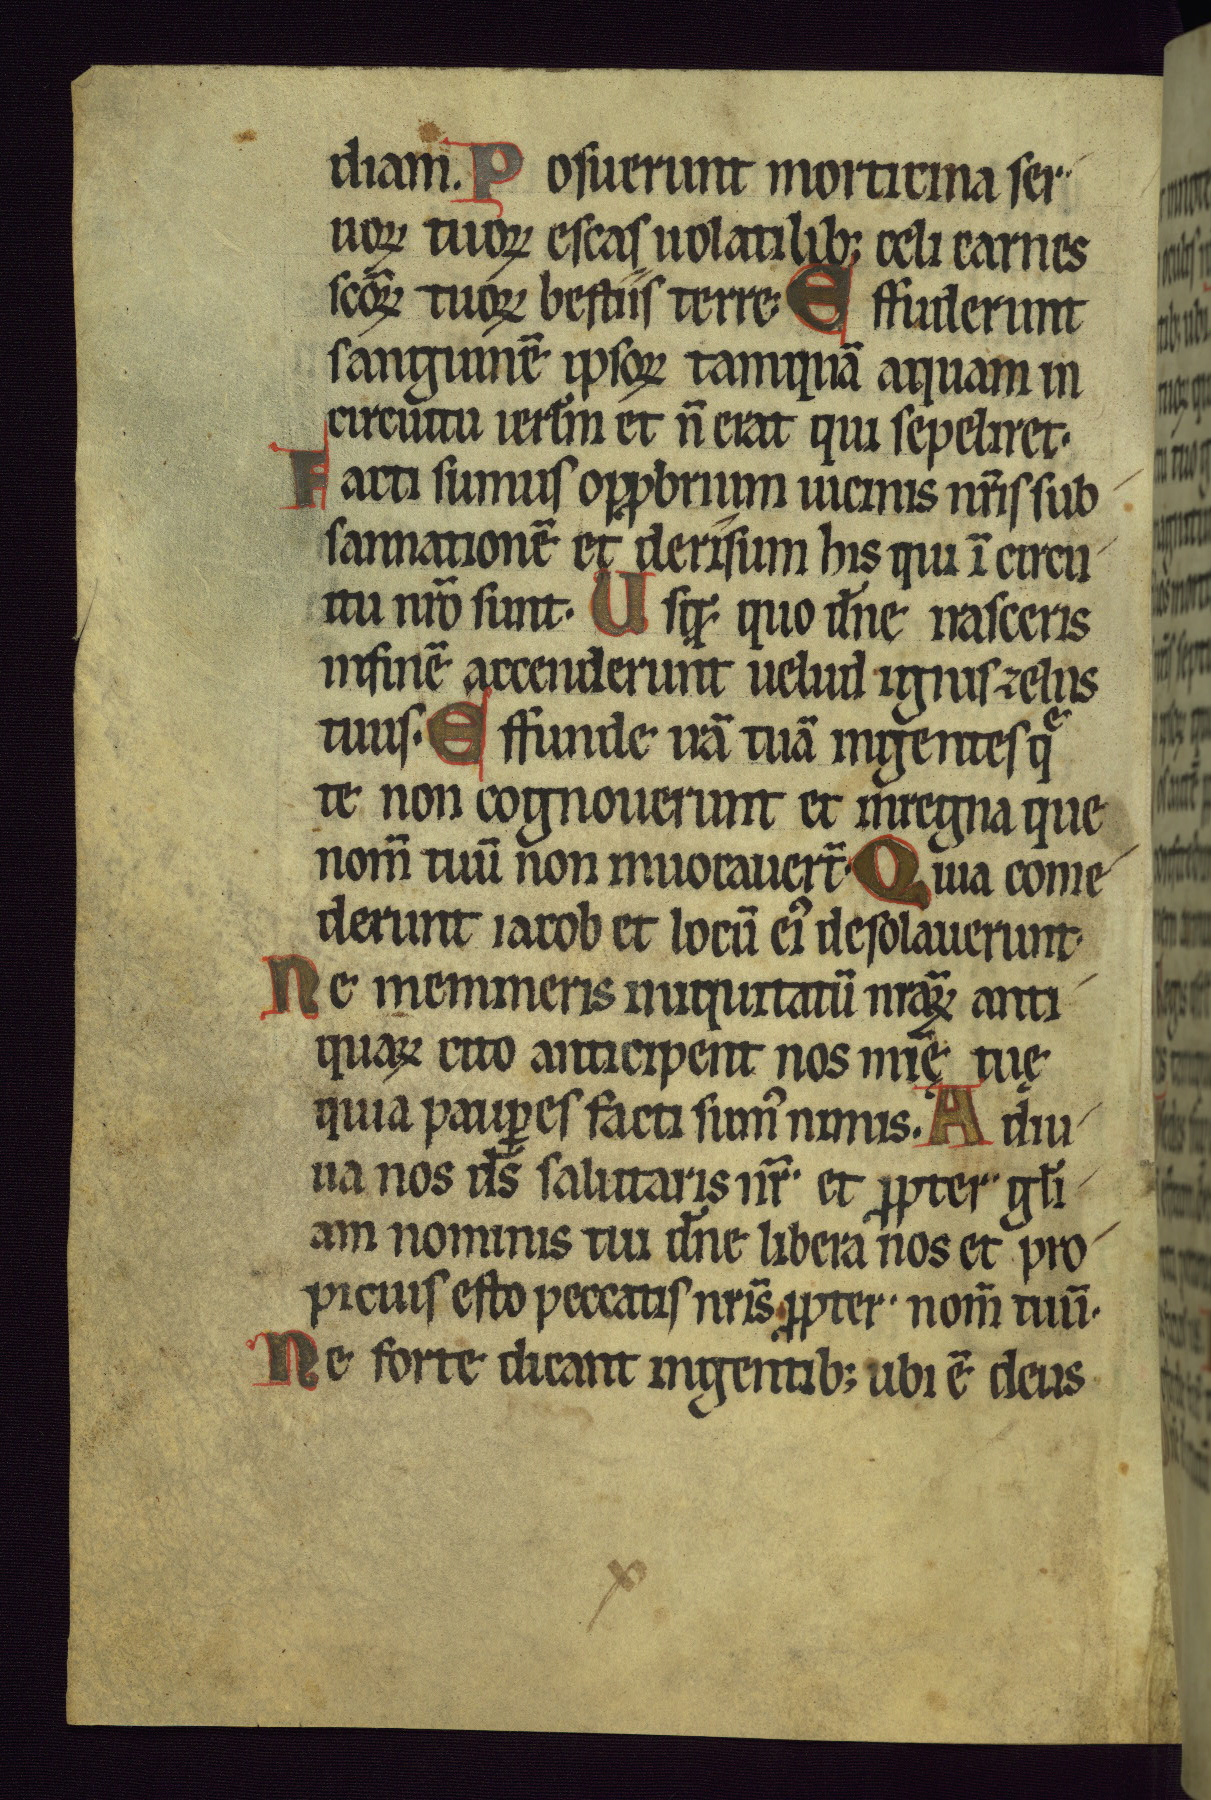 diam. Posuerunt morticina ser
uoꝝ tuoꝝ escas uolatilib; celi carnes
sc̄oꝝ tuoꝝ bestiis terre. Effuderunt
sanguinē ipsoꝝ tamquā aquam in
circuitu ierłm et n̄ erat qui sepeliret.
Facti sumus opꝓbrium uicinis nr̄is sub
sannationē et derisum his qui ī circu
itu nr̄o sunt. Usqꝫ quo dn̄e irasceris
infinē accenderunt uelud ignis zelus
tuus. Effunde irā tuā ingentes qͤ
te non cognouerunt et inregna que
nom̄ tuū non inuocauert̄. Quia come
derunt iacob et locū eiꝰ desolauerunt.
Ne memineris iniquitatū nr̄aꝝ anti
quaꝝ cito anticipent nos mīę tuę
quia pauꝑes facti sumꝰ nimis. Adiu
ua nos ds̄ salutaris nr̄. et ꝓpter głi
am nominis tui dn̄e libera nos et pro
picius esto peccatis nr̄is ꝓpter nom̄ tuū.
Ne forte dicant ingentib; ubi ē deus